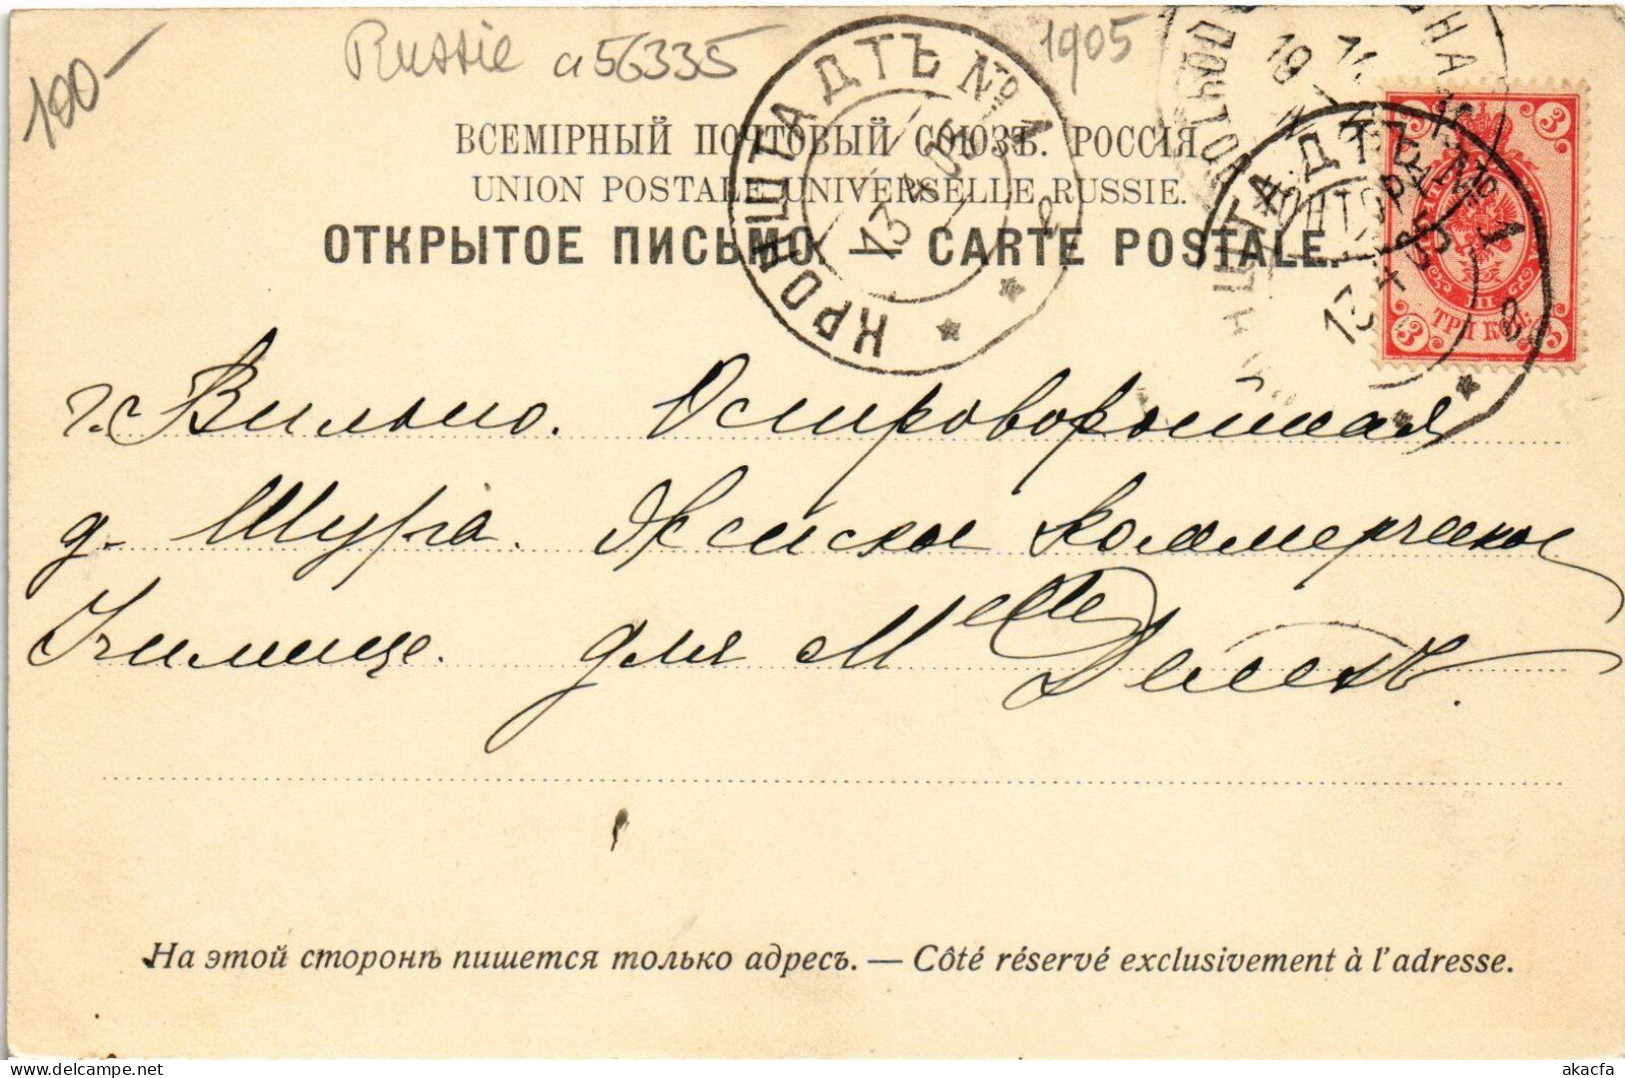 100-
Russie a56335
1905
КРОНШТАДТЪ № 1
13 4 05
ВСЕМІРНЫЙ ПОЧТОВЫЙ СОЮЗЪ. РОССІЯ.
UNION POSTALE UNIVERSELLE RUSSIE.
ОТКРЫТОЕ ПИСЬМО. — CARTE POSTALE.
ТРИ КОП.
г. Вильно. Островоротная
д. Шура. Женское Коммерческое
Училище. для Melle
На этой сторонѣ пишется только адресъ. — Côté réservé exclusivement à l'adresse.
delcampe.net akacfa